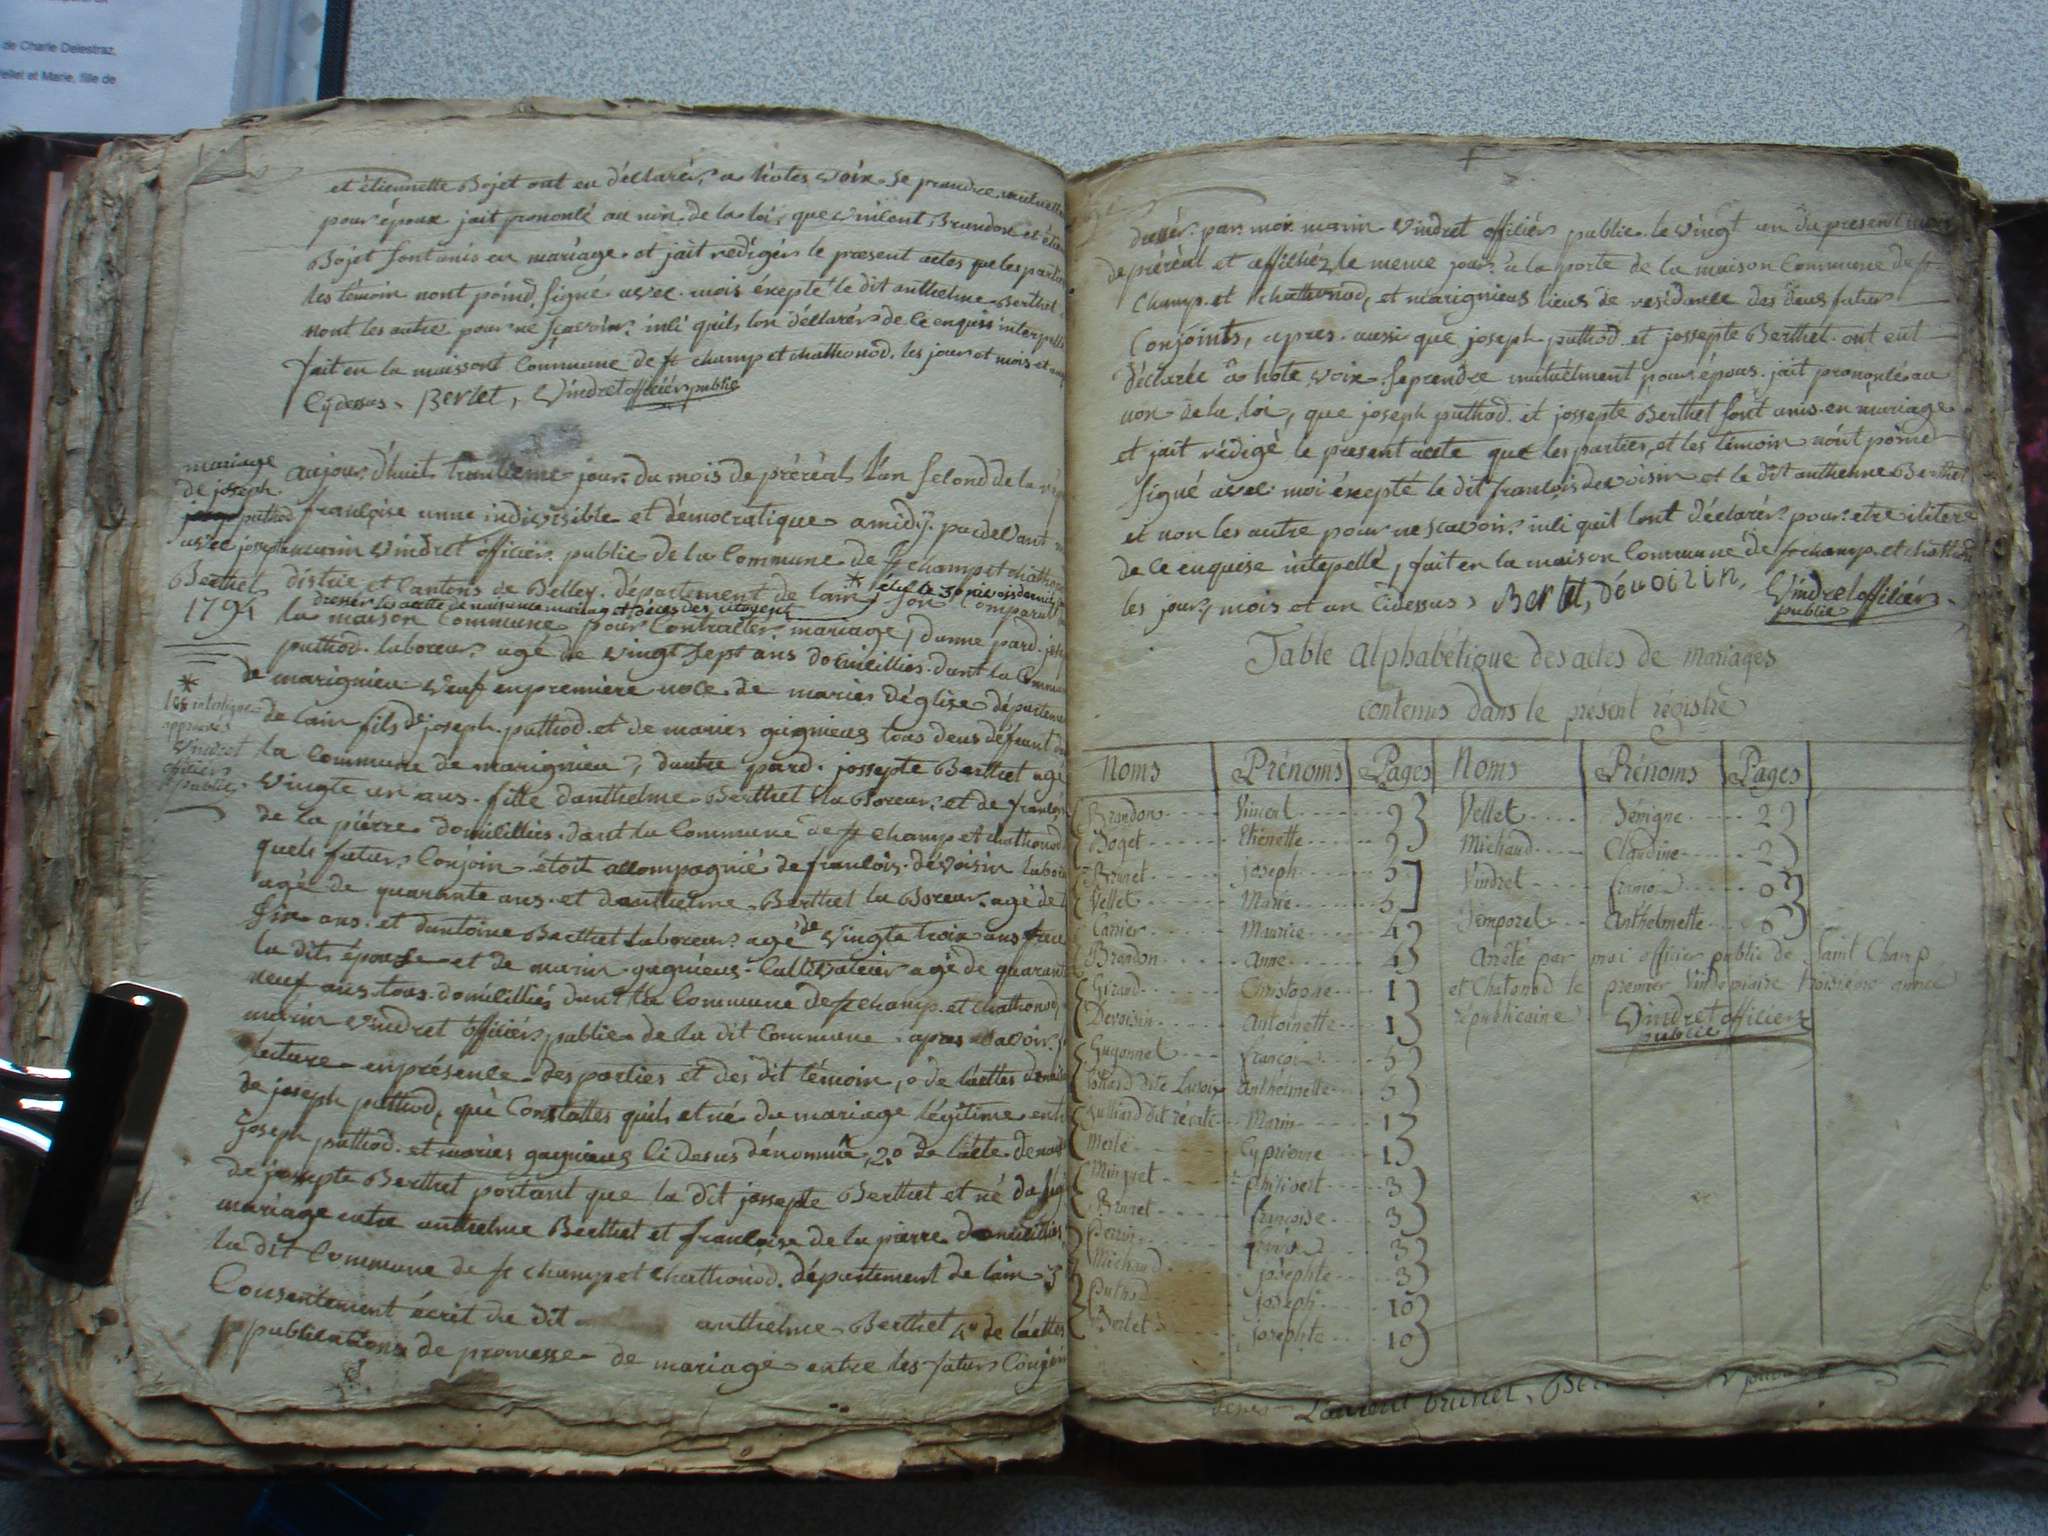 de Charle Delestraz,
ellet et Marie, fille de
et étiennette Bojet ont eu déclarér, a hotes voix se prendre mutuelle
pour époux jait prononté au nin de la loi, que vinlent Brandon et étie
Bojet sont unis en mariage et jait rédigér le present actes que les partie
les témoin nont poind signé avec mois éxepté le dit anthelme Berthet
nont les autre pour ne sçavoir inli quils lon déclarér de ce enquis interpellé
fait en la maisont Commune de st champ et chathonod les jour et mois et an
Cydessus Berlet, Vindret officiér publie
mariage
de joseph
puthod
avec josepte
Berthet
1794
aujour d'huit trantieme jour du mois de préréal l'an segond de la
françoise unne indivisible et démocratique a midÿ pardevant
marin Vindret officiér publie de la Commune de st champ et chathonod
distric et Cantons de Belley département de lain * élut le 30
dresser les acttes de naissence mariag et décès des citoyent son Comparut
la maison Commune pour Contracter mariage, dunne pard
puthod laboreur agé de vingt sept ans domicilliés dant la Commune
de marignieu veuf en première noce de mariés déglise départeme
*
interligne
approuvés
Vindret
officiér
publie
de lain fils de joseph puthod et de mariés gagnieus tous deus défeunt
la Commune de marignieu, dautre pard jossepte Berthet agé
vingte un ans fille danthelme Berthet la Boreur et de
de la piérre domicilliés dant la Commune de st champ et chathonod
quels futur Conjoin étoit allompagnié de françois dévoisin
agé de quarante ans et danthelme Berthet la Boreur agé de
six ans et dantoine Berthet laboreur agé de vingte trois ans
la dit épouse et de marin gagnieus Cultivateur agé de quarante
neuf ans tous domicilliés dant la Commune de st champ et chathonod
marin Vindret officiér publie de la dit Commune apres avoir
lecture en présence des parties et des dit témoin, 1o de lacttes
de joseph puthod, que Constattes quils et né du mariage légitime
joseph puthod et mariés gagnieus Ci desus dénommé, 2o de lacte
de josepte Berthet portant que la dit jossepte Berthet et né du
mariage entre anthelme Berthet et françoise de la pierre domicilliés
la dit Commune de st champ et chathonod département de lain 3
Consentement écrit du dit anthelme Berthet 4o de lacttes
publications de promesse de mariage entre les futur Conjoin
dressér par moi marin Vindret officiér publie le vingt un du present mois
de préréal et affichéz le meme jour a la porte de la maison Commune de st
champ et chathonod, et marignieus lieus de residance des deus futur
Conjoints, apres aussi que joseph puthod et jossepte Berthet ont eut
déclaréé a hote voix se prendre mutuélment pour épous jait prononté au
non de la loi, que joseph puthod et jossepte Berthet sont unis en mariage
et jait rédigé le present acte que les parties et les témoin nont poind
signé avec moi éxepté le dit françois devoisin et le dit anthelme Berthet
et non les autre pour ne scavoir inli quil lont déclarér pour etre ilitere
de ce enquise intepellé, fait en la maison Commune de st champ et chathod
les jour, mois et an Cidessus, Berlet, Dévoisin, Vindret officiér
publie
Table Alphabétique des actes de Mariages
contenus dans le present régistre
Noms Prénoms Pages Noms Prénoms Pages
Brandon Vincent 9 Vellet Bénigne 2
Boget Etienette 9 Michaud Claudine 2
Brunet joseph 5 Vindret françois 6
Vellet Marie 5 Temporel Anthelmette 6
Carrier Maurice 4 Arrêté par moi officier publie de Saint Champ
Brandon Anne 4 et Chatonod le premier Vindemiaire troisieme année
Girard Christophe 1 republicaine Vindret officiér
Devoisin Antoinette 1 publie
Gugonnet françois 5
Anthelmette 5
Marin 1
Merle Cyprienne 1
Minguet philibert 3
Brunet françoise 3
Perrin 3
Michaud josephte 3
Puthod Joseph 10
Bertet josephte 10
Laurent brunet,